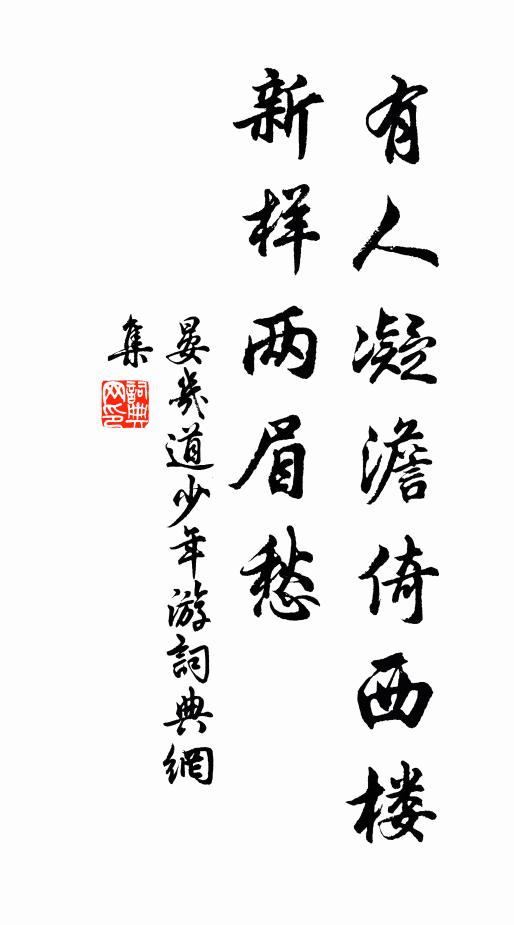 有人凝澹倚西楼
新样两眉愁
晏幾道少年游詞典網
集
詞典网印